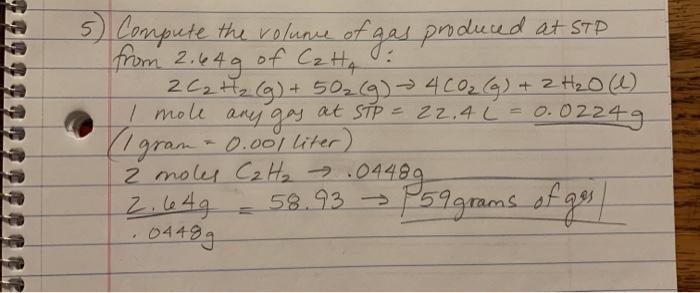 5) Compute the volume of gas produced at STP
from 2.64g of C₂H₄ :
2C₂H₂(g) + 5O₂(g) → 4CO₂(g) + 2H₂O(l)
1 mole any gas at STP = 22.4L = 0.0224g
(1 gram = 0.001 liter)
2 moles C₂H₂ → .0448g
2.64g = 58.93 → 59grams of gas
.0448g